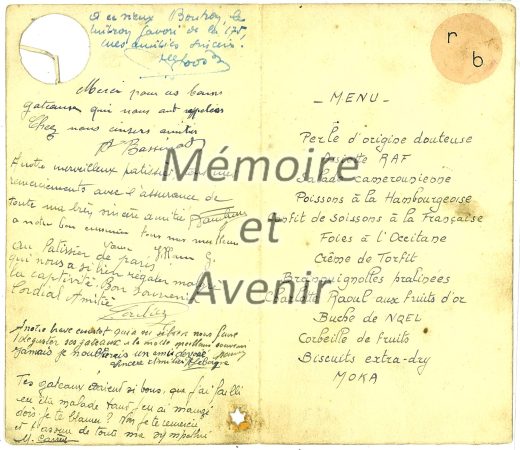 A ce vieux Boutron, le
mitron favori de la 175,
mes amitiés sincères.
Merci pour ces bons
gateaux qui nous ont rappelés
Chez nous sincères amitiés
A notre merveilleux patissier
remerciements avec l'assurance de
toute ma très sincère amitié
a notre bon cuisinier tous mes
au Patissier de paris
qui nous a si bien régaler malgré
la captivité. Bon souvenir
Cordial Amitié
A notre brave cuistot qui a su si bien nous faire
déguster ses gateaux à la mode meilleur souvenir
Jamais je n'oublierais un ami dévoué
sincère amitié
Tes gateaux étaient si bons, que j'ai failli
en être malade tant j'en ai mangé
dois-je te blamer? Non je te remercie
et t'assure de toute ma sympathie
r b
- MENU -
Perle d'origine douteuse
RAF
Salade camerounienne
Poissons à la Hambourgeoise
de Soissons à la Française
Foies à l'Occitane
Crème de Torfit
Branquignolles pralinées
Charlotte Raoul aux fruits d'or
Buche de NOEL
Corbeille de fruits
Biscuits extra-dry
MOKA
Mémoire
et
Avenir